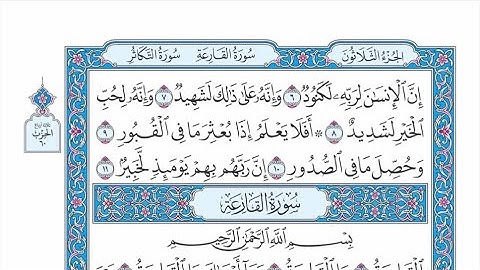 الجزء الثلاثون
سورة القارعة
سورة التكاثر
إِنَّ ٱلْإِنسَٰنَ لِرَبِّهِۦ لَكَنُودٌ ٦ وَإِنَّهُۥ عَلَىٰ ذَٰلِكَ لَشَهِيدٌ ٧ وَإِنَّهُۥ لِحُبِّ
ٱلْخَيْرِ لَشَدِيدٌ ٨ ۞ أَفَلَا يَعْلَمُ إِذَا بُعْثِرَ مَا فِى ٱلْقُبُورِ ٩
وَحُصِّلَ مَا فِى ٱلصُّدُورِ ١٠ إِنَّ رَبَّهُم بِهِمْ يَوْمَئِذٍ لَّخَبِيرٌۢ ١١
سُورَةُ القَارِعَةِ
بِسْمِ ٱللَّهِ ٱلرَّحْمَٰنِ ٱلرَّحِيمِ